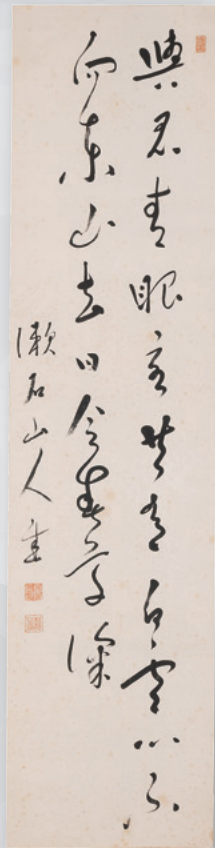 與君青眼客共有白雲心不
向東山去日令春草深
漱石山人書